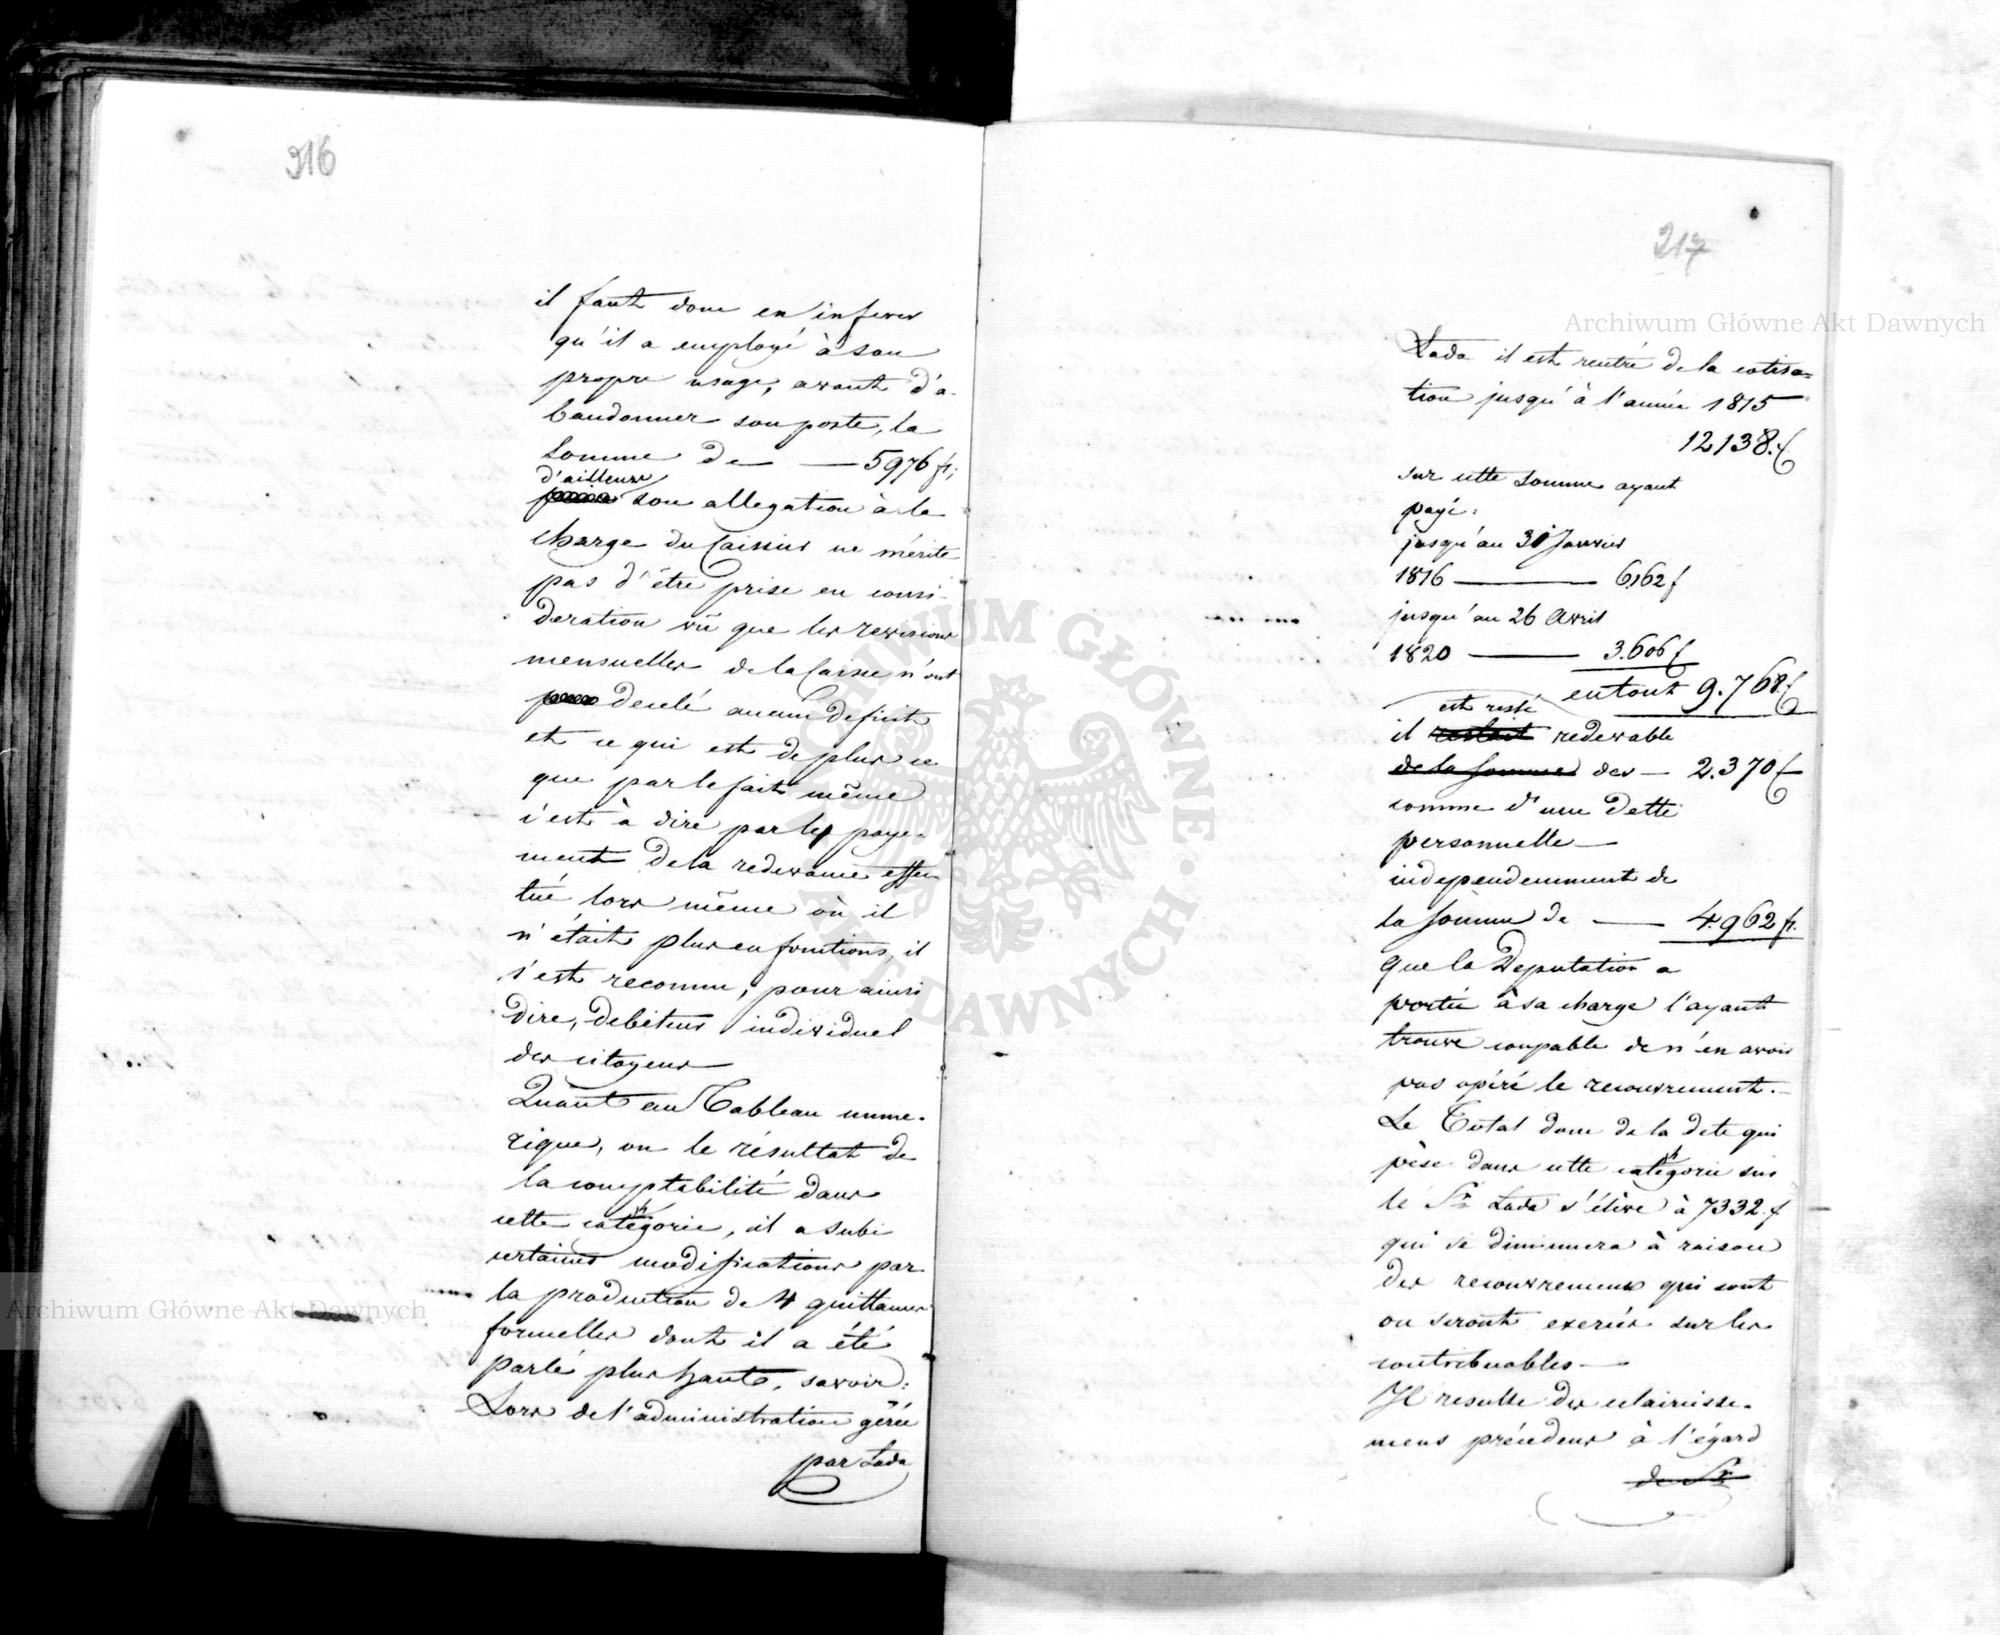 916
il faut donc en inferer
qu'il a employé à son
propre usage, avant d'a-
bandonner son poste, la
somme de — — 5976 fr;
d'ailleurs
son allegation à la
charge du Caissier ne mérite
pas d'être prise en consi-
deration vû que les revisions
mensuelles de la Caisse n'ont
decelé aucun deficit
et ce qui est de plus ce
que par le fait même
c'est à dire par le paye-
ment de la redevance effec-
tué lors même où il
n'était plus en fonctions, il
s'est reconnu, pour ainsi
dire, debiteur individuel
des citoyens —
Quant au Tableau nume-
rique, ou le résultat de
la comptabilité dans
cette catégorie, il a subi
certaines modifications par
la production de 4 quittances
formelles dont il a été
parlé plus haut, savoir:
Lors de l'administration gérée
par Lada
217
Lada il est rentré de la cotisa=
tion jusqu'à l'année 1815
12138.f
sur cette somme ayant
payé:
jusqu'au 31 Janvier
1816 — 6162 f
jusqu'au 26 Avril
1820 — 3.606 f
en tout 9.768.f
est resté
il restait redevable
de la somme des — 2.370 f
comme d'une dette
personnelle —
independemment de
la somme de — 4.962 fr.
que la Deputation a
portée à sa charge l'ayant
trouvé coupable de n'en avoir
pas opéré le recouvrement. —
Le Total donc de la dete qui
pèse dans cette catégorie sur
le Sr Lada s'élève à 7332.f
qui se diminuera à raison
des recouvremens qui sont
ou seront exercés sur les
contribuables —
Il resulte des eclaircisse-
mens précédens à l'égard
de Sr
Archiwum Główne Akt Dawnych
Archiwum Główne Akt Dawnych
ARCHIWUM GŁÓWNE AKT DAWNYCH